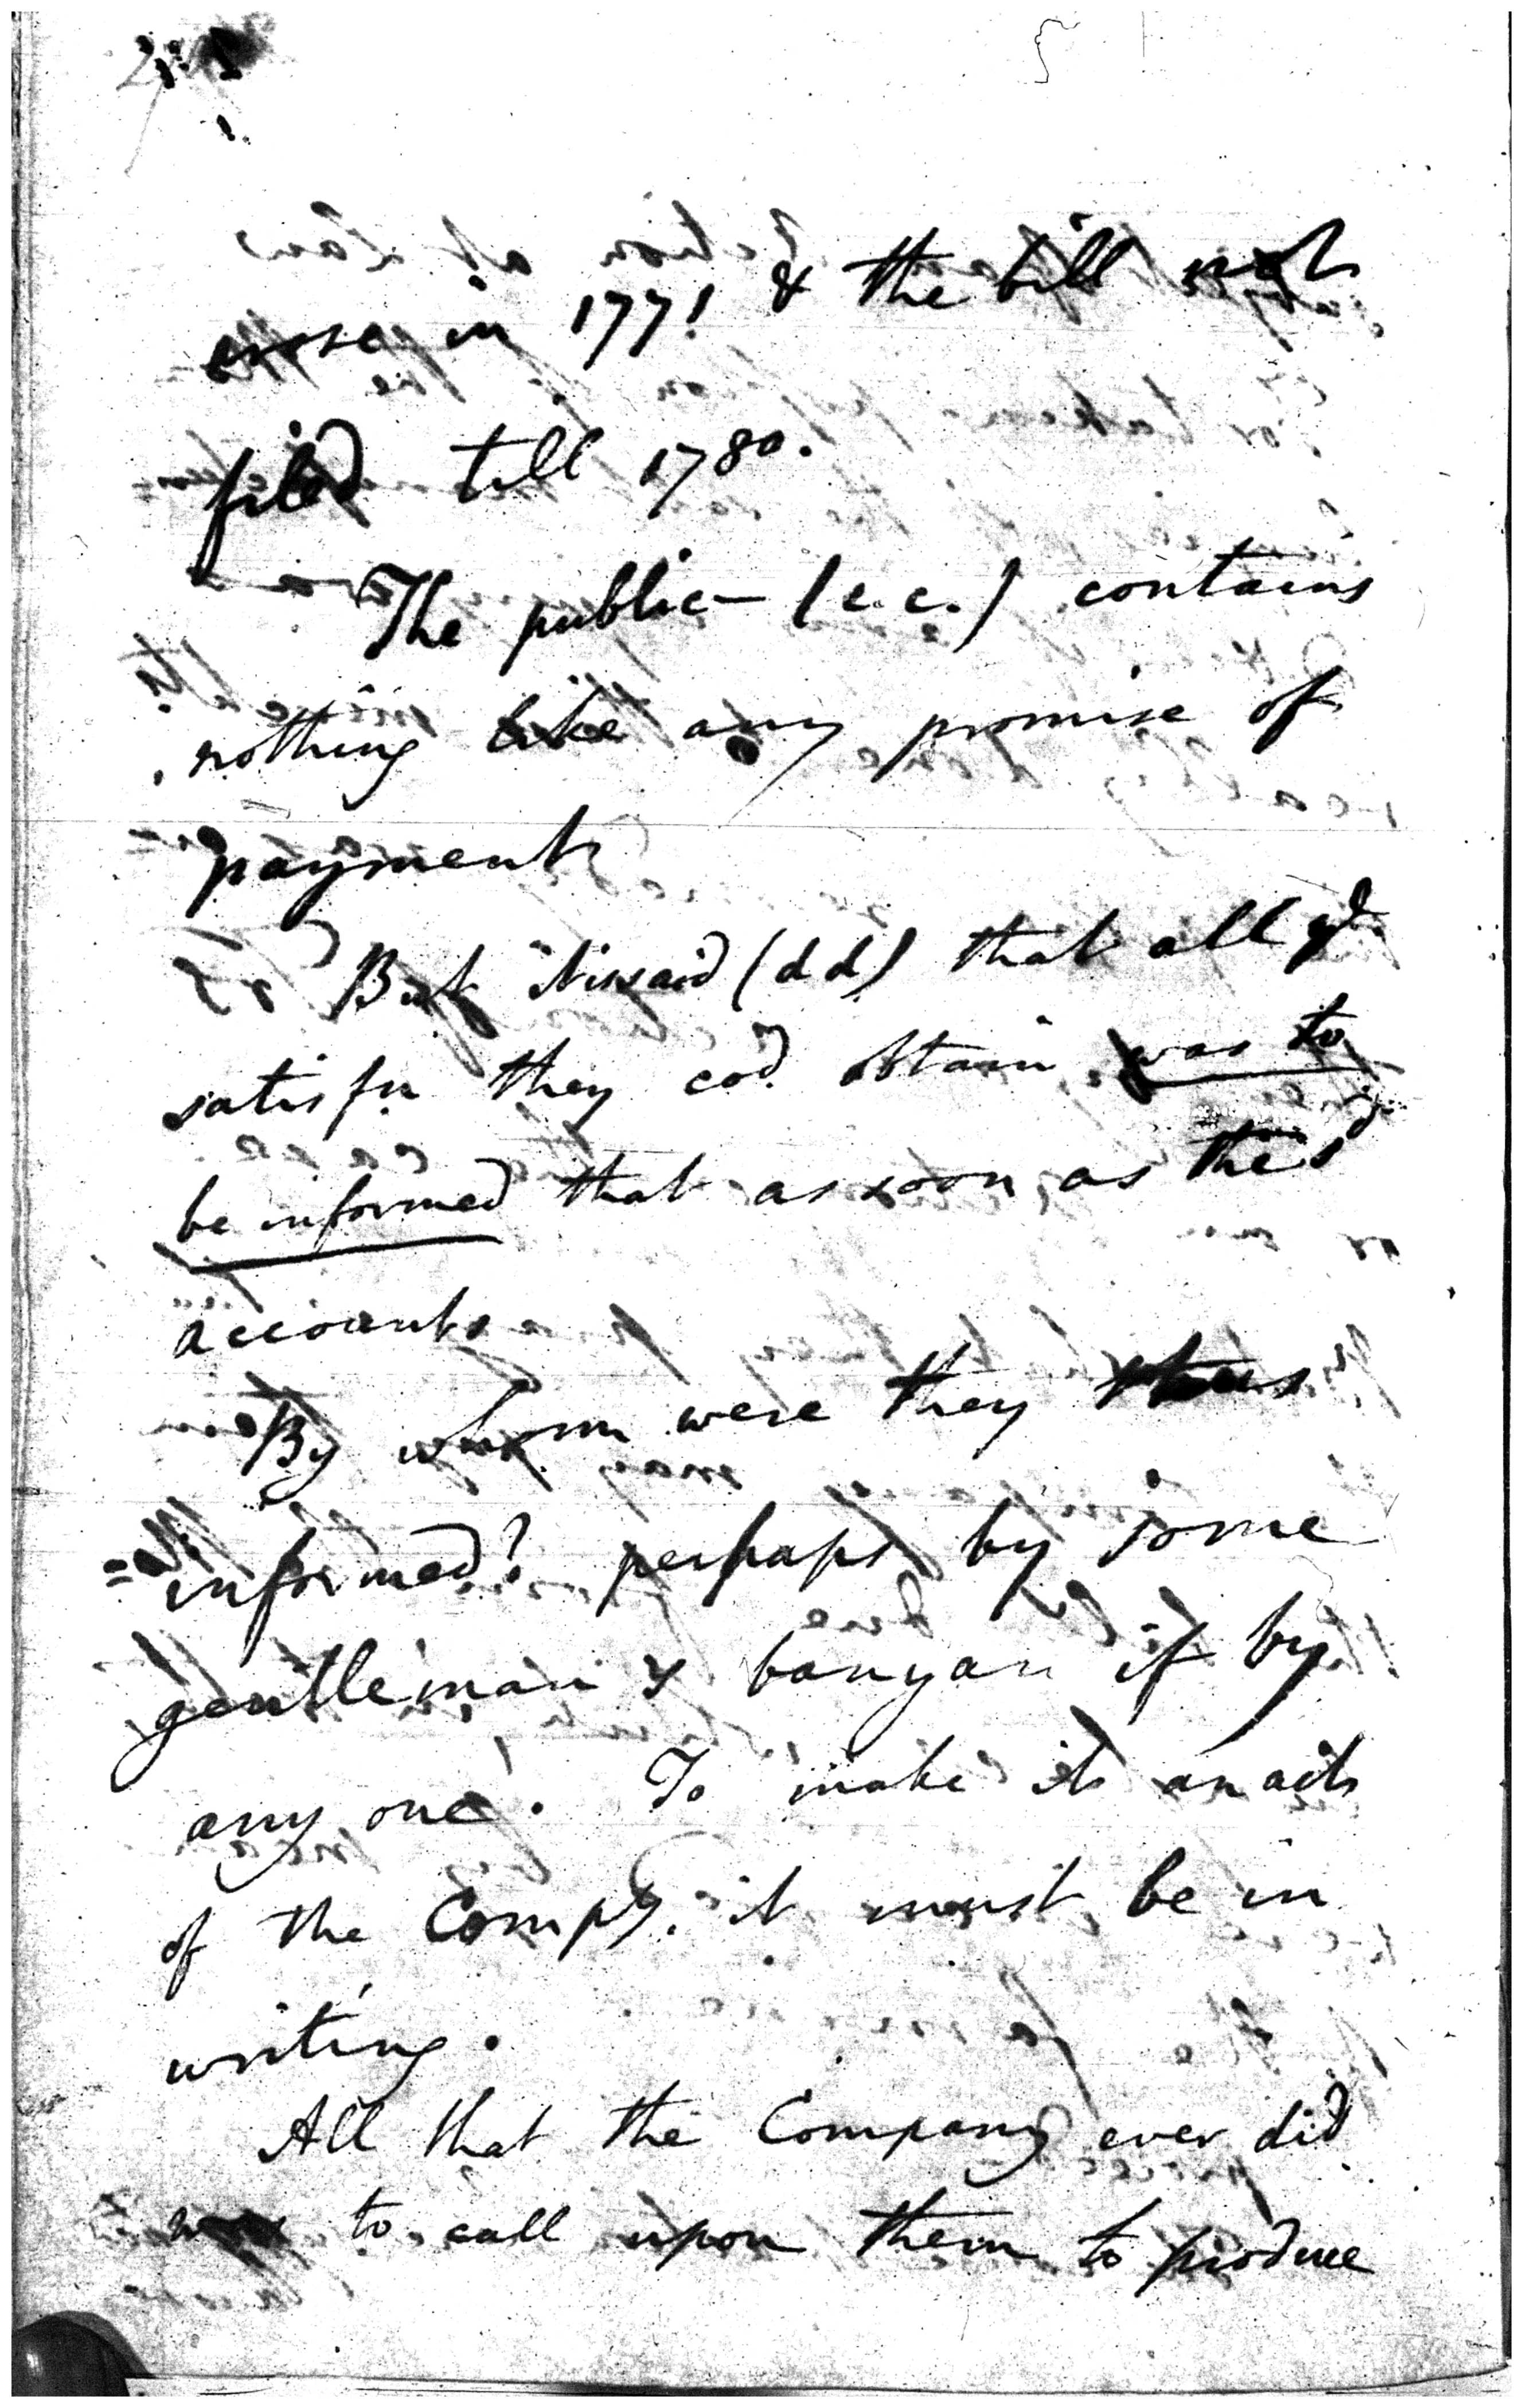 arose in 1771 & the bill not
filed till 1780.
The public — (c.c.) contains
nothing like any promise of
payment
But it is said (dd) that all ye
satisfn they cod. obtain was to
be informed that as soon as the sd
accounts
By whom were they thus
informed? perhaps by some
gentleman's banyan if by
any one. To make it an act
of the Compy. it must be in
writing.
All that the Company ever did
was to call upon them to produce